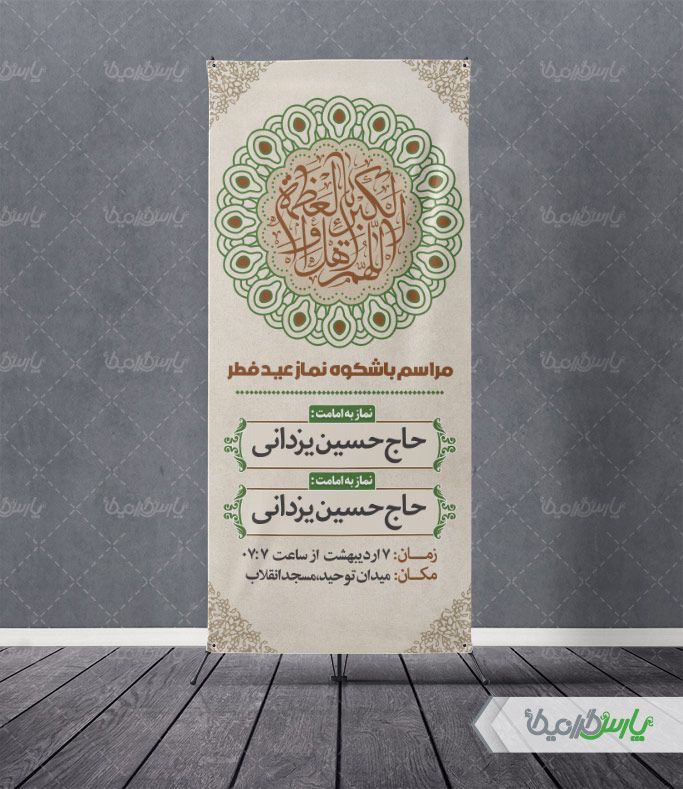 اللهم اهل الکبریاء و العظمة
مراسم باشکوه نماز عید فطر
نماز به امامت:
حاج حسین یزدانی
نماز به امامت:
حاج حسین یزدانی
زمان: ۷ اردیبهشت از ساعت ۰۷:۷
مکان: میدان توحید،مسجد انقلاب
پارس گرافیک